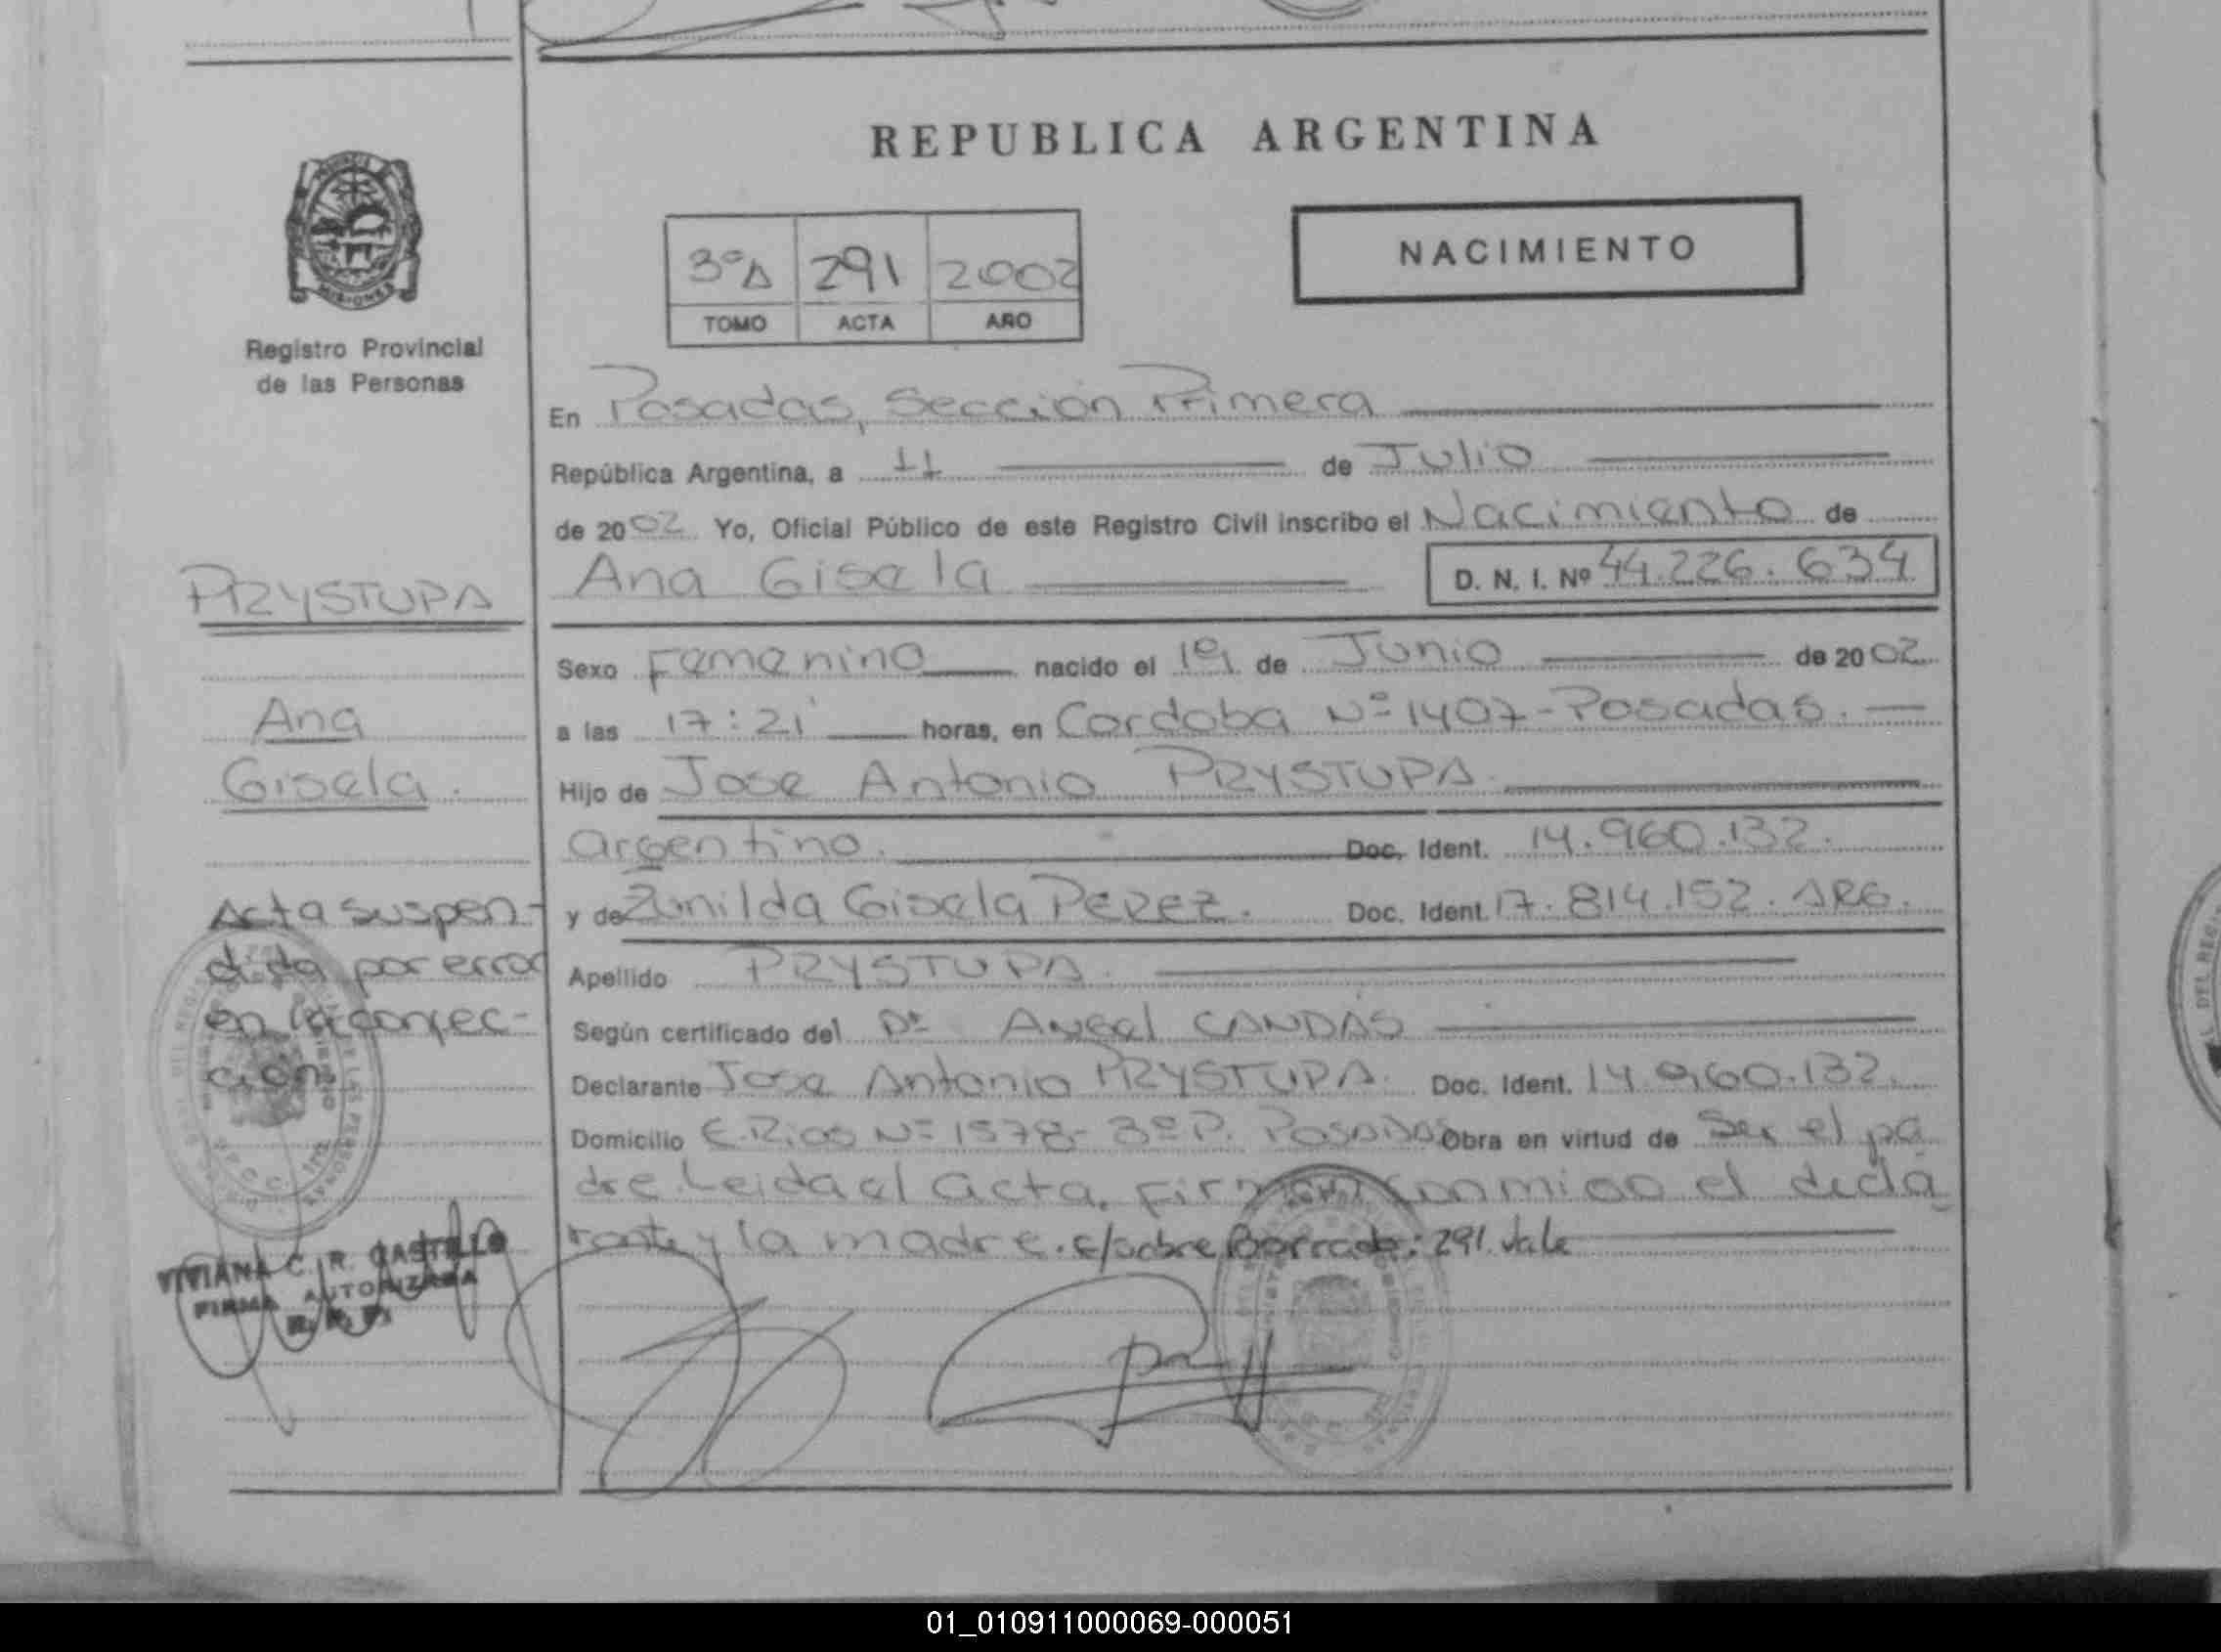 REPUBLICA ARGENTINA
NACIMIENTO
3ºA 291 2002
TOMO ACTA AÑO
Registro Provincial
de las Personas
En Posadas, Sección Primera
República Argentina, a 11 de Julio
de 2002 Yo, Oficial Público de este Registro Civil inscribo el Nacimiento de
Ana Gisela D. N. I. Nº 44.226.634
PRYSTUPA
Ana
Gisela.
Sexo Femenino nacido el 19 de Junio de 2002
a las 17:21 horas, en Cordoba Nº 1407-Posadas.
Hijo de Jose Antonio PRYSTUPA
argentino. Doc. Ident. 14.960.132.
y de Zunilda Gisela Perez. Doc. Ident. 17.814.152. ARG.
Apellido PRYSTUPA.
Según certificado del Dr Angel CANDAS
Declarante Jose Antonio PRYSTUPA. Doc. Ident. 14.960.132.
Domicilio E.Rios Nº 1578- 3º P. POSADAS Obra en virtud de Ser el pa
dre Leida el acta, firman conmigo el decla
rante y la madre. E/sobre Borrado: 291. Vale
Acta suspen-
dida por error
en la confec-
ción
VIVIANA C. R. CASTILLO
FIRMA AUTORIZADA
R. P. P.
01_010911000069-000051